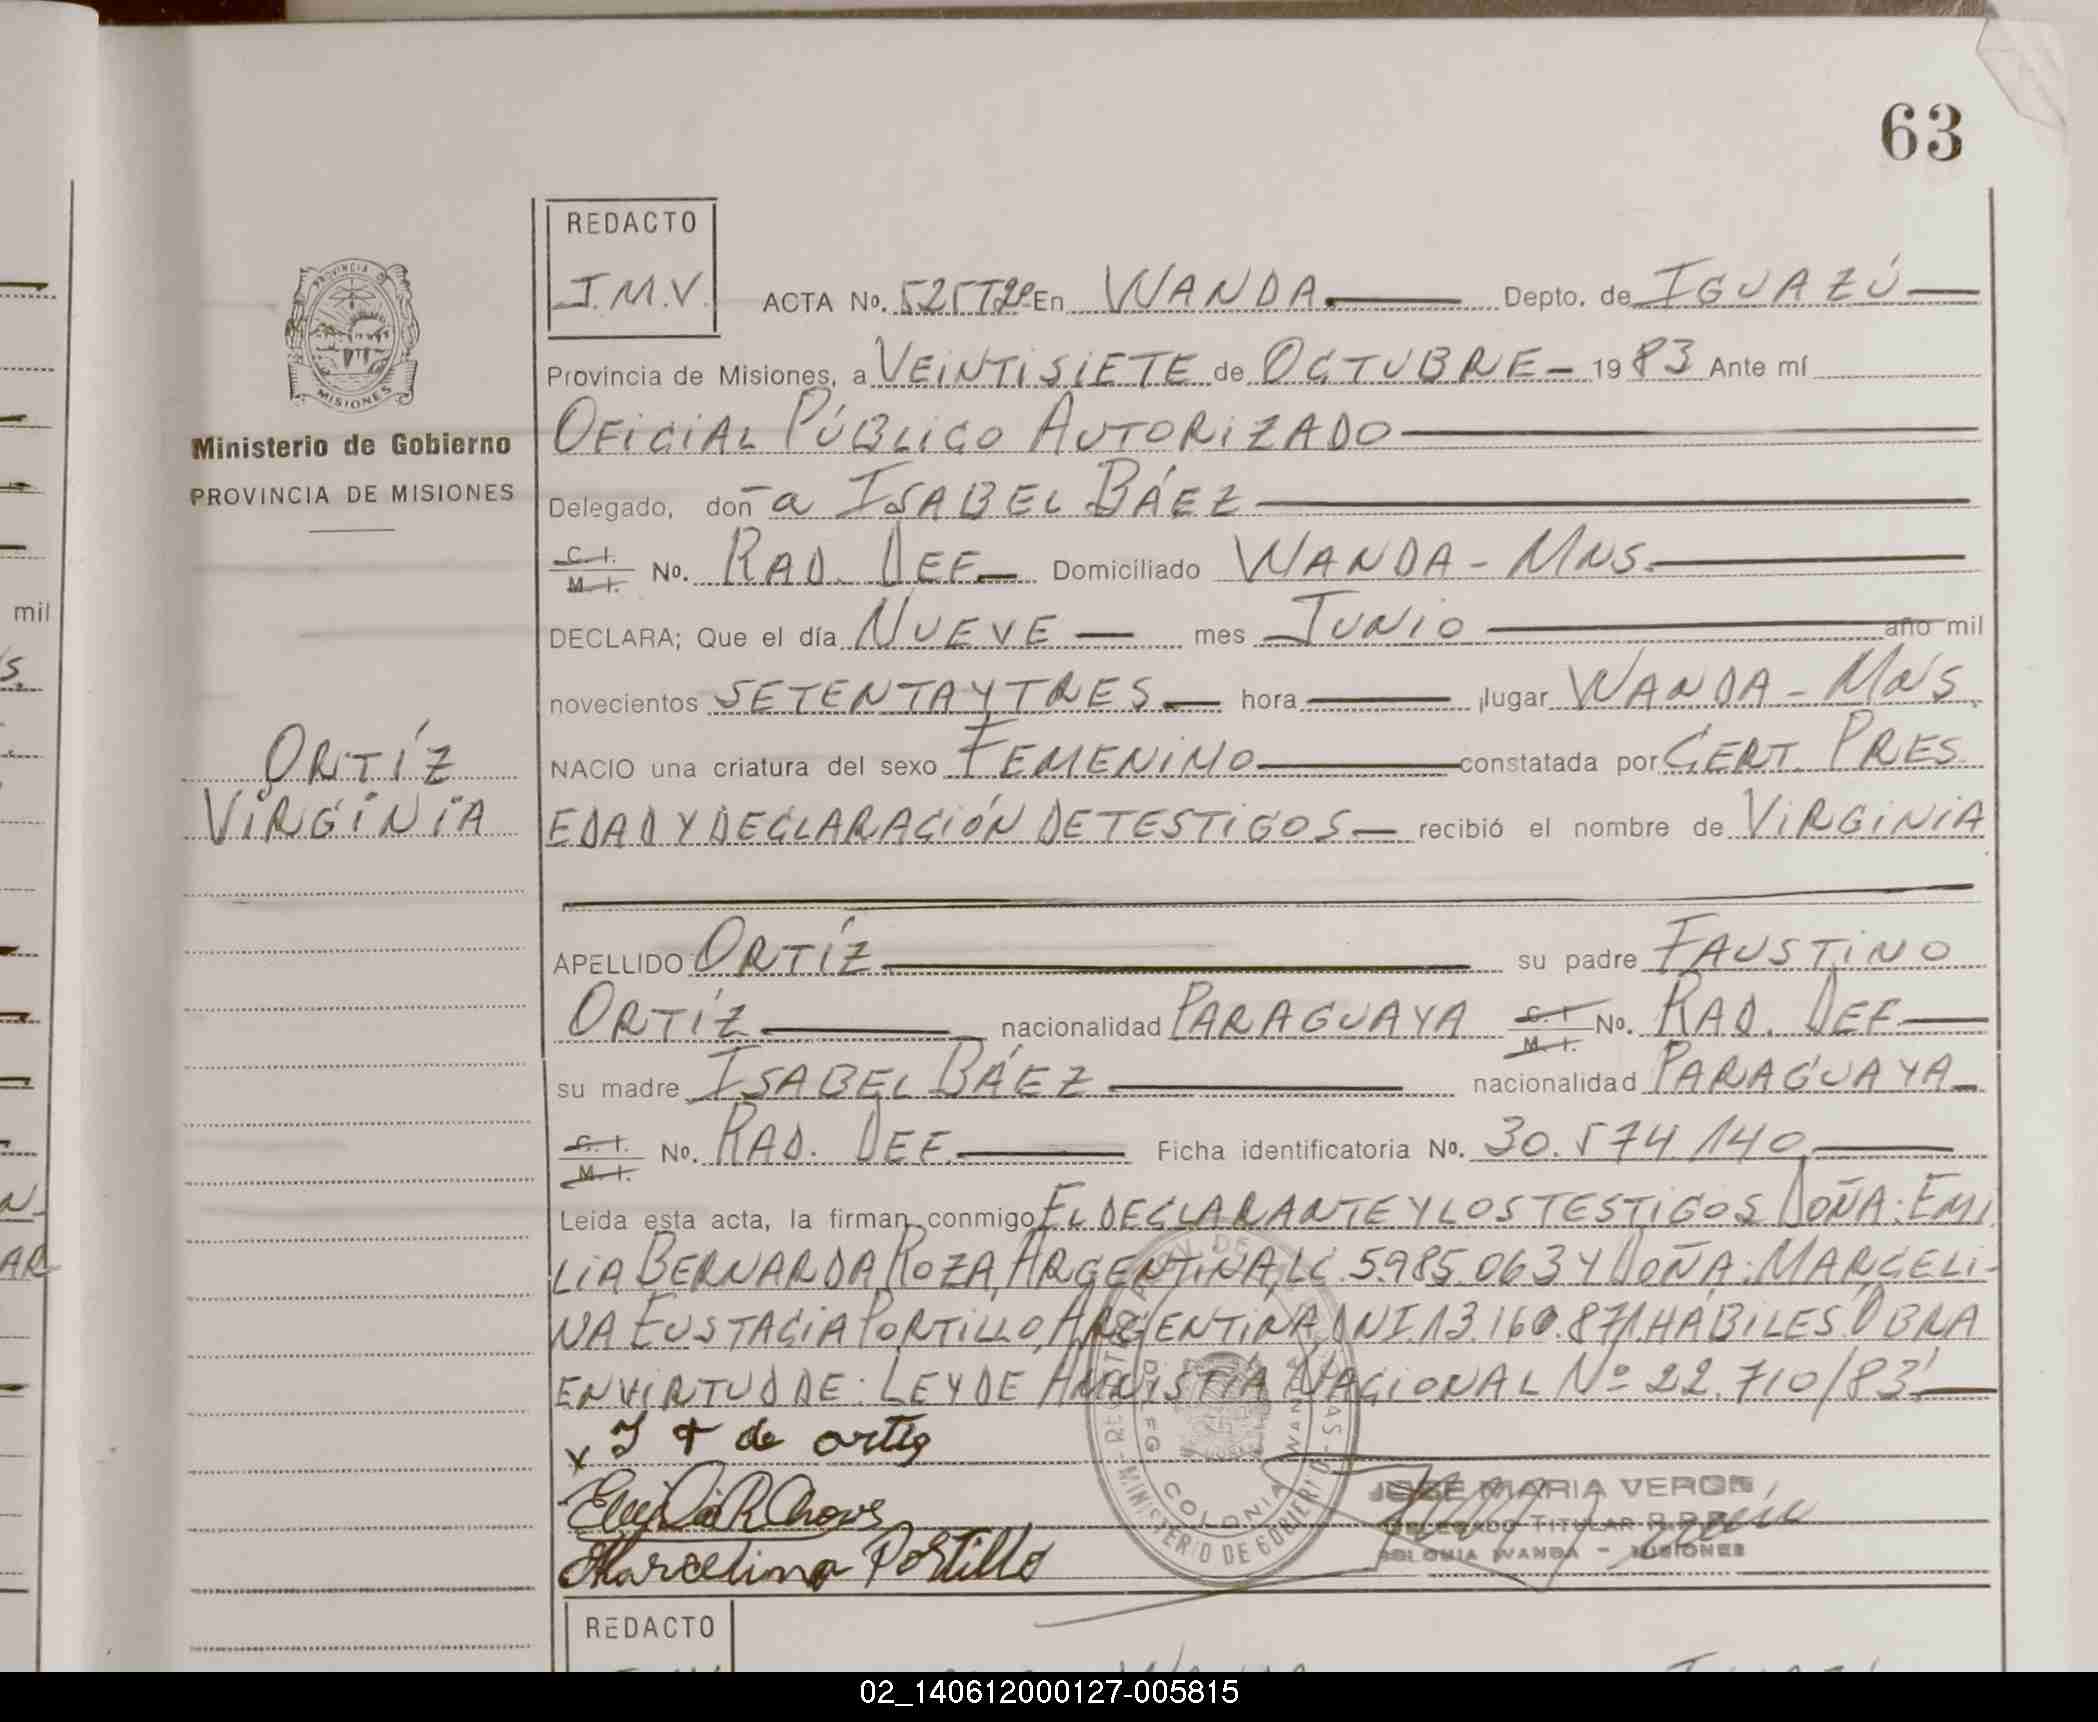 63
REDACTO
J.M.V.
ACTA No. 525 T2º En WANDA Depto. de IGUAZÚ
Provincia de Misiones, a VEINTISIETE de OCTUBRE - 1983 Ante mí
OFICIAL PÚBLICO AUTORIZADO
Delegado, doña ISABEL BÁEZ
C. I.
M. I. No. RAD. DEF. Domiciliado WANDA - MNS.
DECLARA; Que el día NUEVE mes JUNIO año mil
novecientos SETENTA Y TRES hora lugar WANDA - MNS.
NACIO una criatura del sexo FEMENINO constatada por CERT. PRES
EDAD Y DECLARACIÓN DE TESTIGOS recibió el nombre de VIRGINIA
APELLIDO ORTÍZ su padre FAUSTINO
ORTÍZ nacionalidad PARAGUAYA C. I. M. I. No. RAD. DEF.
su madre ISABEL BÁEZ nacionalidad PARAGUAYA
C. I. M. I. No. RAD. DEF. Ficha identificatoria No. 30.574.140
Leida esta acta, la firman conmigo EL DECLARANTE Y LOS TESTIGOS DOÑA: EMI
LIA BERNARDA ROZA, ARGENTINA, LC 5.985.063 Y DOÑA: MARCELI-
NA EUSTACIA PORTILLO, ARGENTINA, DNI 13.160.871. HÁBILES. OBRA
EN VIRTUD DE: LEY DE AMNISTÍA NACIONAL Nº 22.710/83
x J de ortiz
Marcelina Portillo
JOSE MARIA VERON
DELEGADO TITULAR R.P.P.
COLONIA WANDA - MISIONES
COLONIA WANDA
MINISTERIO DE GOBIERNO
PROVINCIA DE
MISIONES
Ministerio de Gobierno
PROVINCIA DE MISIONES
ORTÍZ
VIRGINIA
REDACTO
mil
02_140612000127-005815